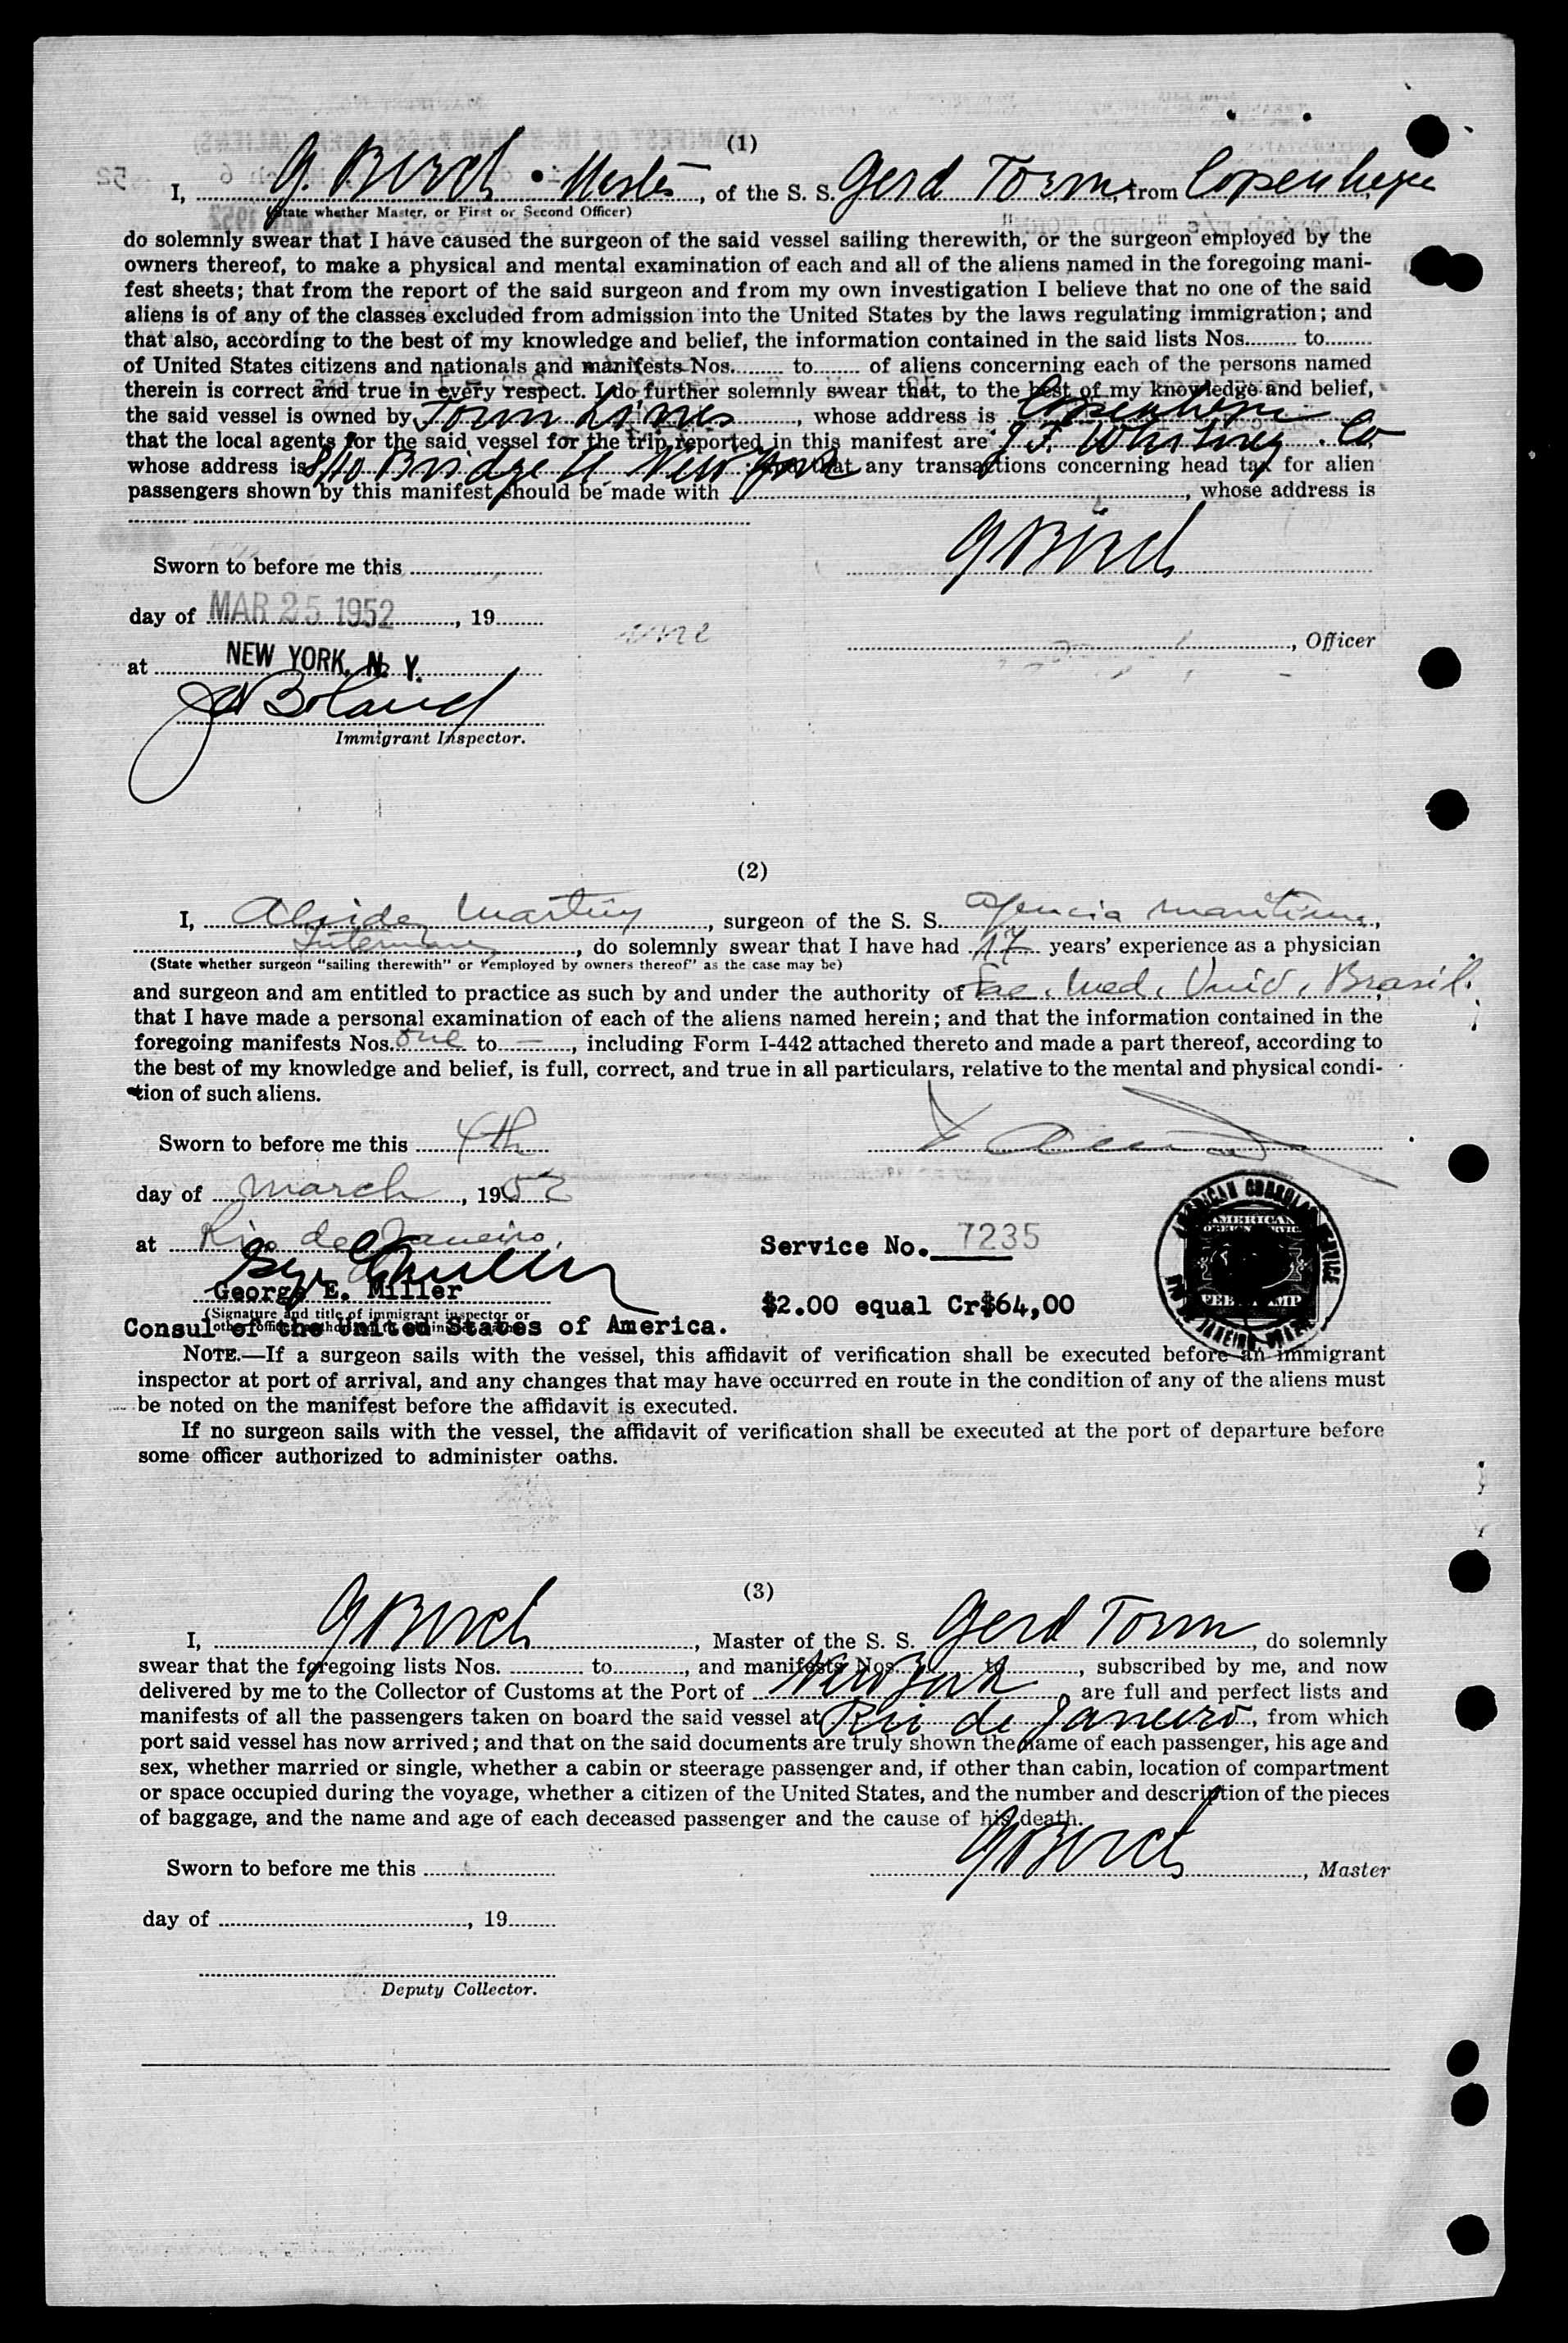 (1)
I, G. Birch · Master, of the S. S. Gerd Torm, from Copenhagen
(State whether Master, or First or Second Officer)
do solemnly swear that I have caused the surgeon of the said vessel sailing therewith, or the surgeon employed by the
owners thereof, to make a physical and mental examination of each and all of the aliens named in the foregoing mani-
fest sheets; that from the report of the said surgeon and from my own investigation I believe that no one of the said
aliens is of any of the classes excluded from admission into the United States by the laws regulating immigration; and
that also, according to the best of my knowledge and belief, the information contained in the said lists Nos. to
of United States citizens and nationals and manifests Nos. to of aliens concerning each of the persons named
therein is correct and true in every respect. I do further solemnly swear that, to the best of my knowledge and belief,
the said vessel is owned by Torm Lines, whose address is Copenhagen
that the local agents for the said vessel for the trip reported in this manifest are J. F. Whitney . Co
whose address is 8/10 Bridge St New York; that any transactions concerning head tax for alien
passengers shown by this manifest should be made with , whose address is
G Birch
Sworn to before me this
day of MAR 25 1952, 19
, Officer
at NEW YORK, N. Y.
Boland
Immigrant Inspector.
(2)
I, Alcides Martins, surgeon of the S. S. Agencia maritima,
Intermares, do solemnly swear that I have had 17 years' experience as a physician
(State whether surgeon "sailing therewith" or "employed by owners thereof" as the case may be)
and surgeon and am entitled to practice as such by and under the authority of Fac. Med. Univ. Brasil.
that I have made a personal examination of each of the aliens named herein; and that the information contained in the
foregoing manifests Nos. one to —, including Form I-442 attached thereto and made a part thereof, according to
the best of my knowledge and belief, is full, correct, and true in all particulars, relative to the mental and physical condi-
tion of such aliens.
Sworn to before me this 4th
day of March, 1952
at Rio de Janeiro,
Service No. 7235
George E. Miller
(Signature and title of immigrant inspector or
$2.00 equal Cr$64,00
Consul of the United States of America.
AMERICAN CONSULAR SERVICE
RIO DE JANEIRO, BRAZIL
AMERICAN
FEE STAMP
NOTE.—If a surgeon sails with the vessel, this affidavit of verification shall be executed before an immigrant
inspector at port of arrival, and any changes that may have occurred en route in the condition of any of the aliens must
be noted on the manifest before the affidavit is executed.
If no surgeon sails with the vessel, the affidavit of verification shall be executed at the port of departure before
some officer authorized to administer oaths.
(3)
I, G Birch, Master of the S. S. Gerd Torm, do solemnly
swear that the foregoing lists Nos. to, and manifests Nos. to, subscribed by me, and now
delivered by me to the Collector of Customs at the Port of New York are full and perfect lists and
manifests of all the passengers taken on board the said vessel at Rio de Janeiro, from which
port said vessel has now arrived; and that on the said documents are truly shown the name of each passenger, his age and
sex, whether married or single, whether a cabin or steerage passenger and, if other than cabin, location of compartment
or space occupied during the voyage, whether a citizen of the United States, and the number and description of the pieces
of baggage, and the name and age of each deceased passenger and the cause of his death.
Sworn to before me this
G Birch, Master
day of , 19
Deputy Collector.